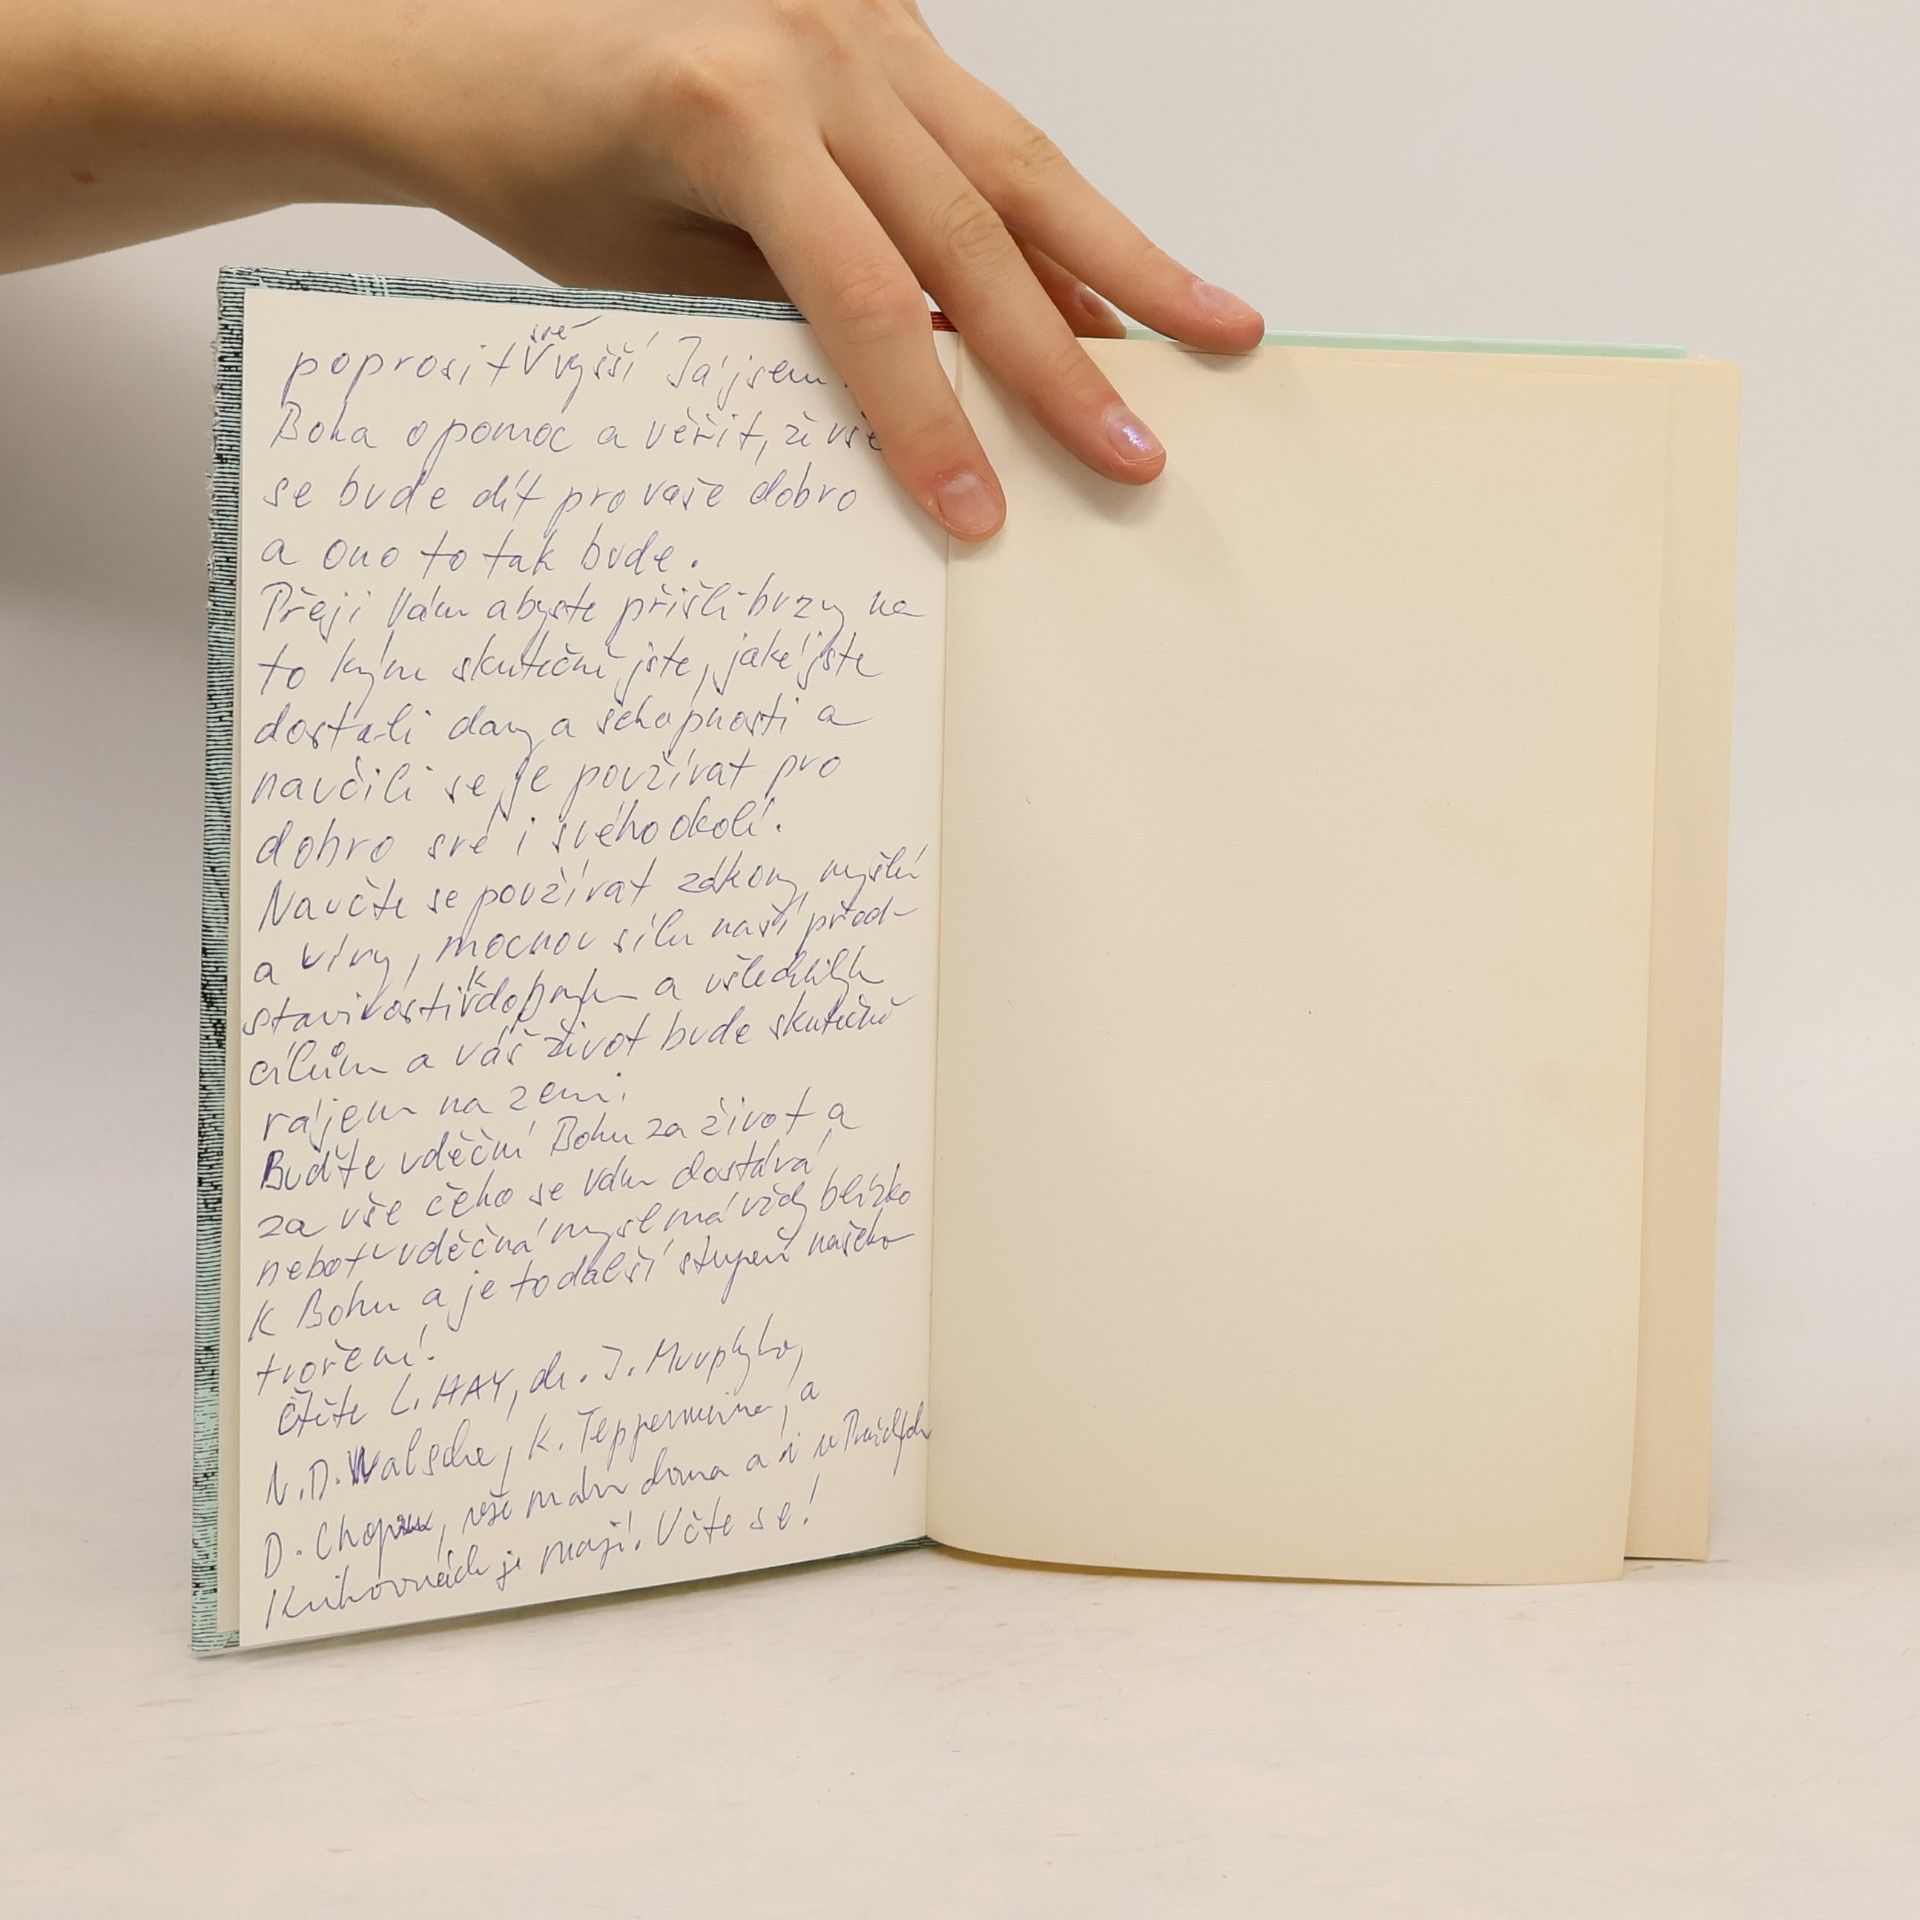 poprosit své vyšší Já jsem
Boha o pomoc a věřit, že vše
se bude dít pro vaše dobro
a ono to tak bude.
Přeji Vám abyste přišli brzy na
to kým skutečně jste, jaké jste
dostali dary a schopnosti a
naučili se je používat pro
dobro své i svého okolí.
Naučte se používat zákony myšlení
a víry, mocnou sílu naší před-
stavivosti k dobrým a ušlechtilým
cílům a váš život bude skutečně
rájem na zemi.
Buďte vděční Bohu za život a
za vše čeho se vám dostává
neboť vděčná mysl má vždy blízko
k Bohu a je to další stupeň našeho
tvoření!
Čtěte L. HAY, dr. J. Murphyho,
N. D. Walsche, K. Tepperweina, a
D. Chopru, vše mám doma a i v
Knihovnách je mají. Učte se!